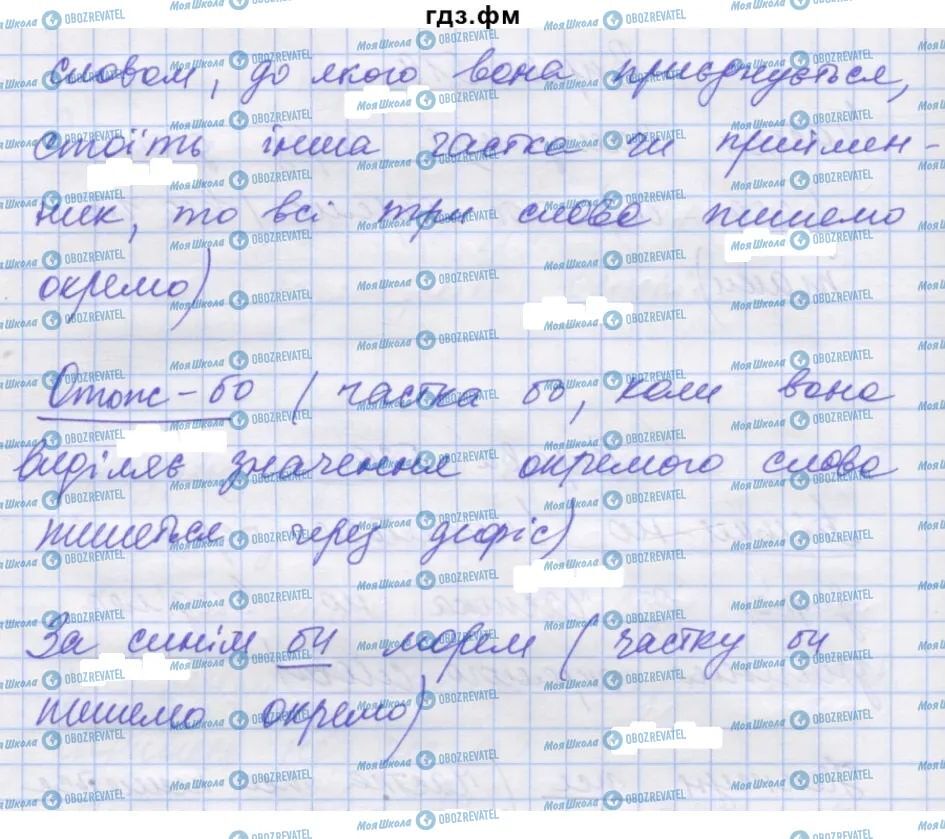 гдз.фм
словом, до якого вона приєднується,
стоїть інша частка чи приймен-
ник, то всі три слова пишемо
окремо)
Отож-бо (частка бо, коли вона
виділяє значення окремого слова
пишеться через дефіс)
За синім би морем (частку би
пишемо окремо)
МояШкола OBOZREVATEL